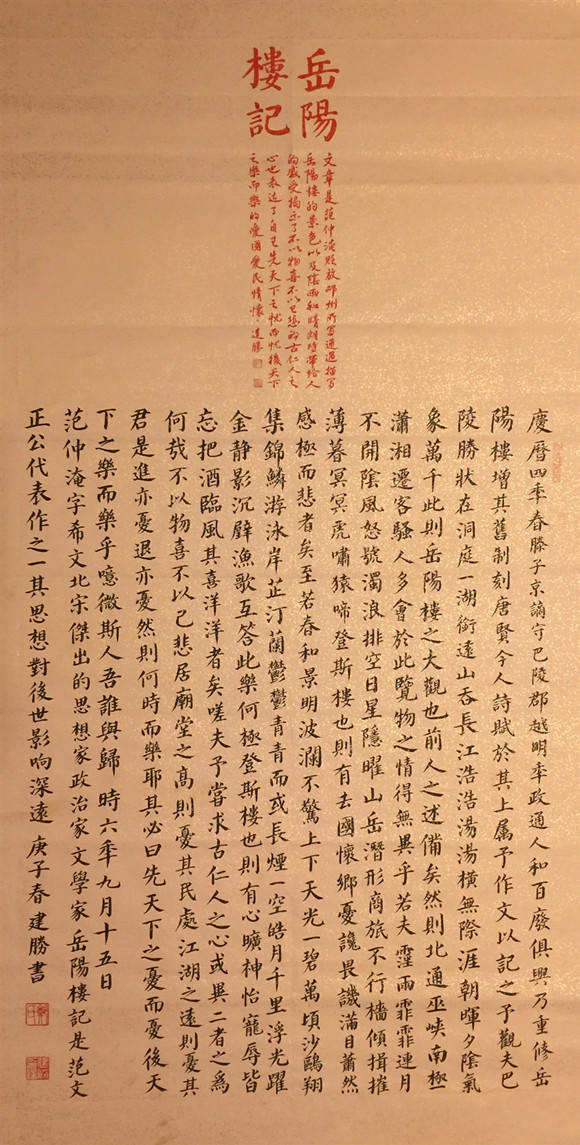 岳陽
樓記
文章是范仲淹貶放邓州所写通過描写
岳陽樓的景色以及陰雨和晴朗時帶給人
的感受揭示了不以物喜不以己悲的古仁人之
心也表达了自己先天下之忧而忧後天下
之樂而樂的愛國愛民情懷 建勝
慶曆四年春滕子京謫守巴陵郡越明年政通人和百廢俱興乃重修岳
陽樓增其舊制刻唐賢今人詩賦於其上属予作文以記之予觀夫巴
陵勝狀在洞庭一湖銜遠山吞長江浩浩湯湯橫無際涯朝暉夕陰氣
象萬千此則岳陽樓之大觀也前人之述備矣然則北通巫峽南極
瀟湘遷客騷人多會於此覽物之情得無異乎若夫霪雨霏霏連月
不開陰風怒號濁浪排空日星隱曜山岳潛形商旅不行檣傾楫摧
薄暮冥冥虎嘯猿啼登斯樓也則有去國懷鄉憂讒畏譏滿目蕭然
感極而悲者矣至若春和景明波瀾不驚上下天光一碧萬頃沙鷗翔
集錦鱗游泳岸芷汀蘭鬱鬱青青而或長煙一空皓月千里浮光躍
金静影沉璧漁歌互答此樂何極登斯樓也則有心曠神怡寵辱皆
忘把酒臨風其喜洋洋者矣嗟夫予嘗求古仁人之心或異二者之爲
何哉不以物喜不以己悲居廟堂之高則憂其民處江湖之遠則憂其
君是進亦憂退亦憂然則何時而樂耶其必曰先天下之憂而憂後天
下之樂而樂乎噫微斯人吾誰與歸 時六年九月十五日
范仲淹字希文北宋傑出的思想家政治家文學家岳陽樓記是范文
正公代表作之一其思想對後世影响深遠 庚子春建勝書